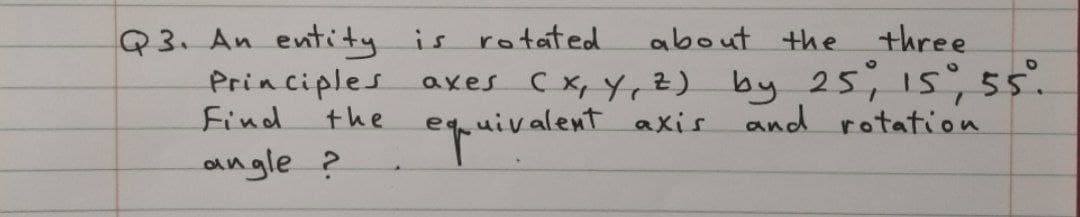 Q3. An entity is rotated about the three
Principles axes (x, y, z) by 25°, 15°, 55°.
Find the equivalent axis and rotation
angle ?